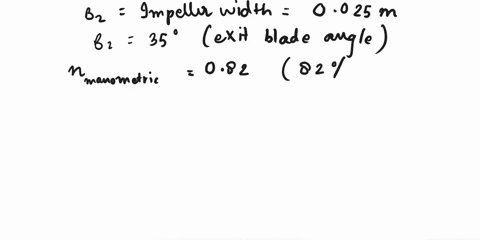 B₂ = Impeller width = 0.025 m
β₂ = 35° (exit blade angle)
η manometric = 0.82 (82%